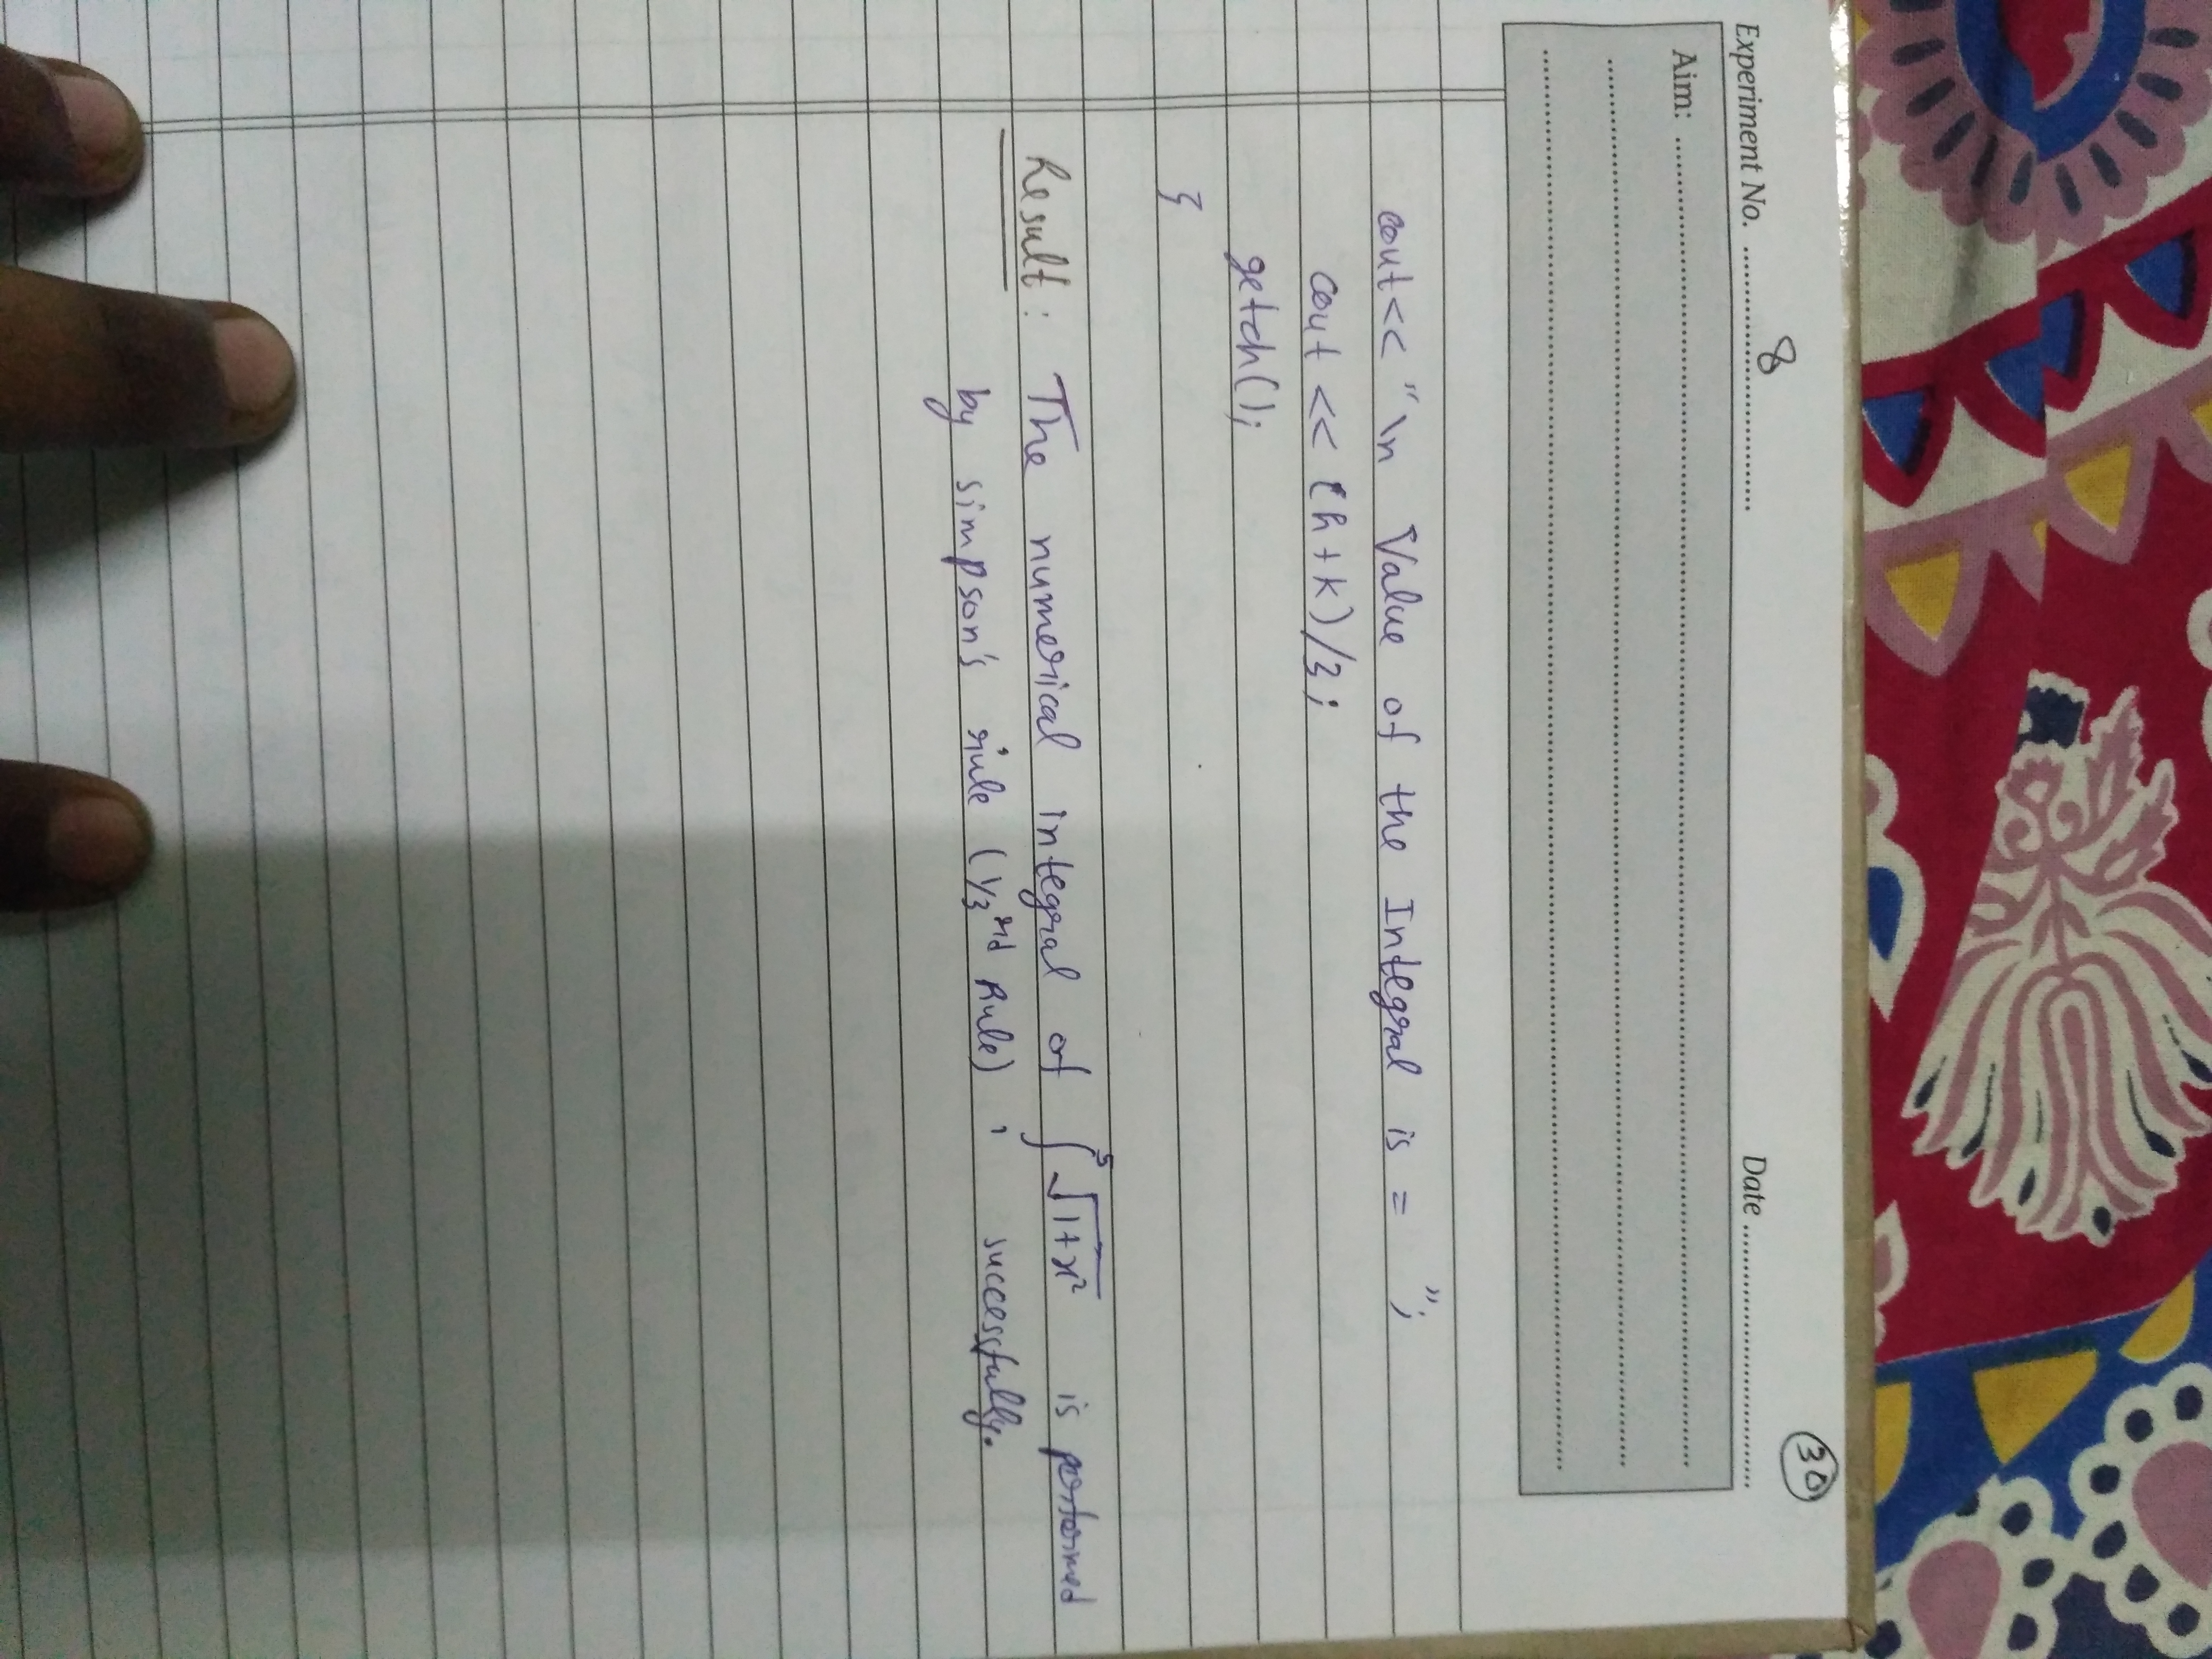 30
Experiment No. 8 Date
Aim:
cout<< "\n Value of the Integral is = ";
cout << (h+k)/3;
getch();
}
Result: The numerical integral of ∫⁵ √1+x² is performed
by simpson's rule (1/3rd Rule) i successfully.